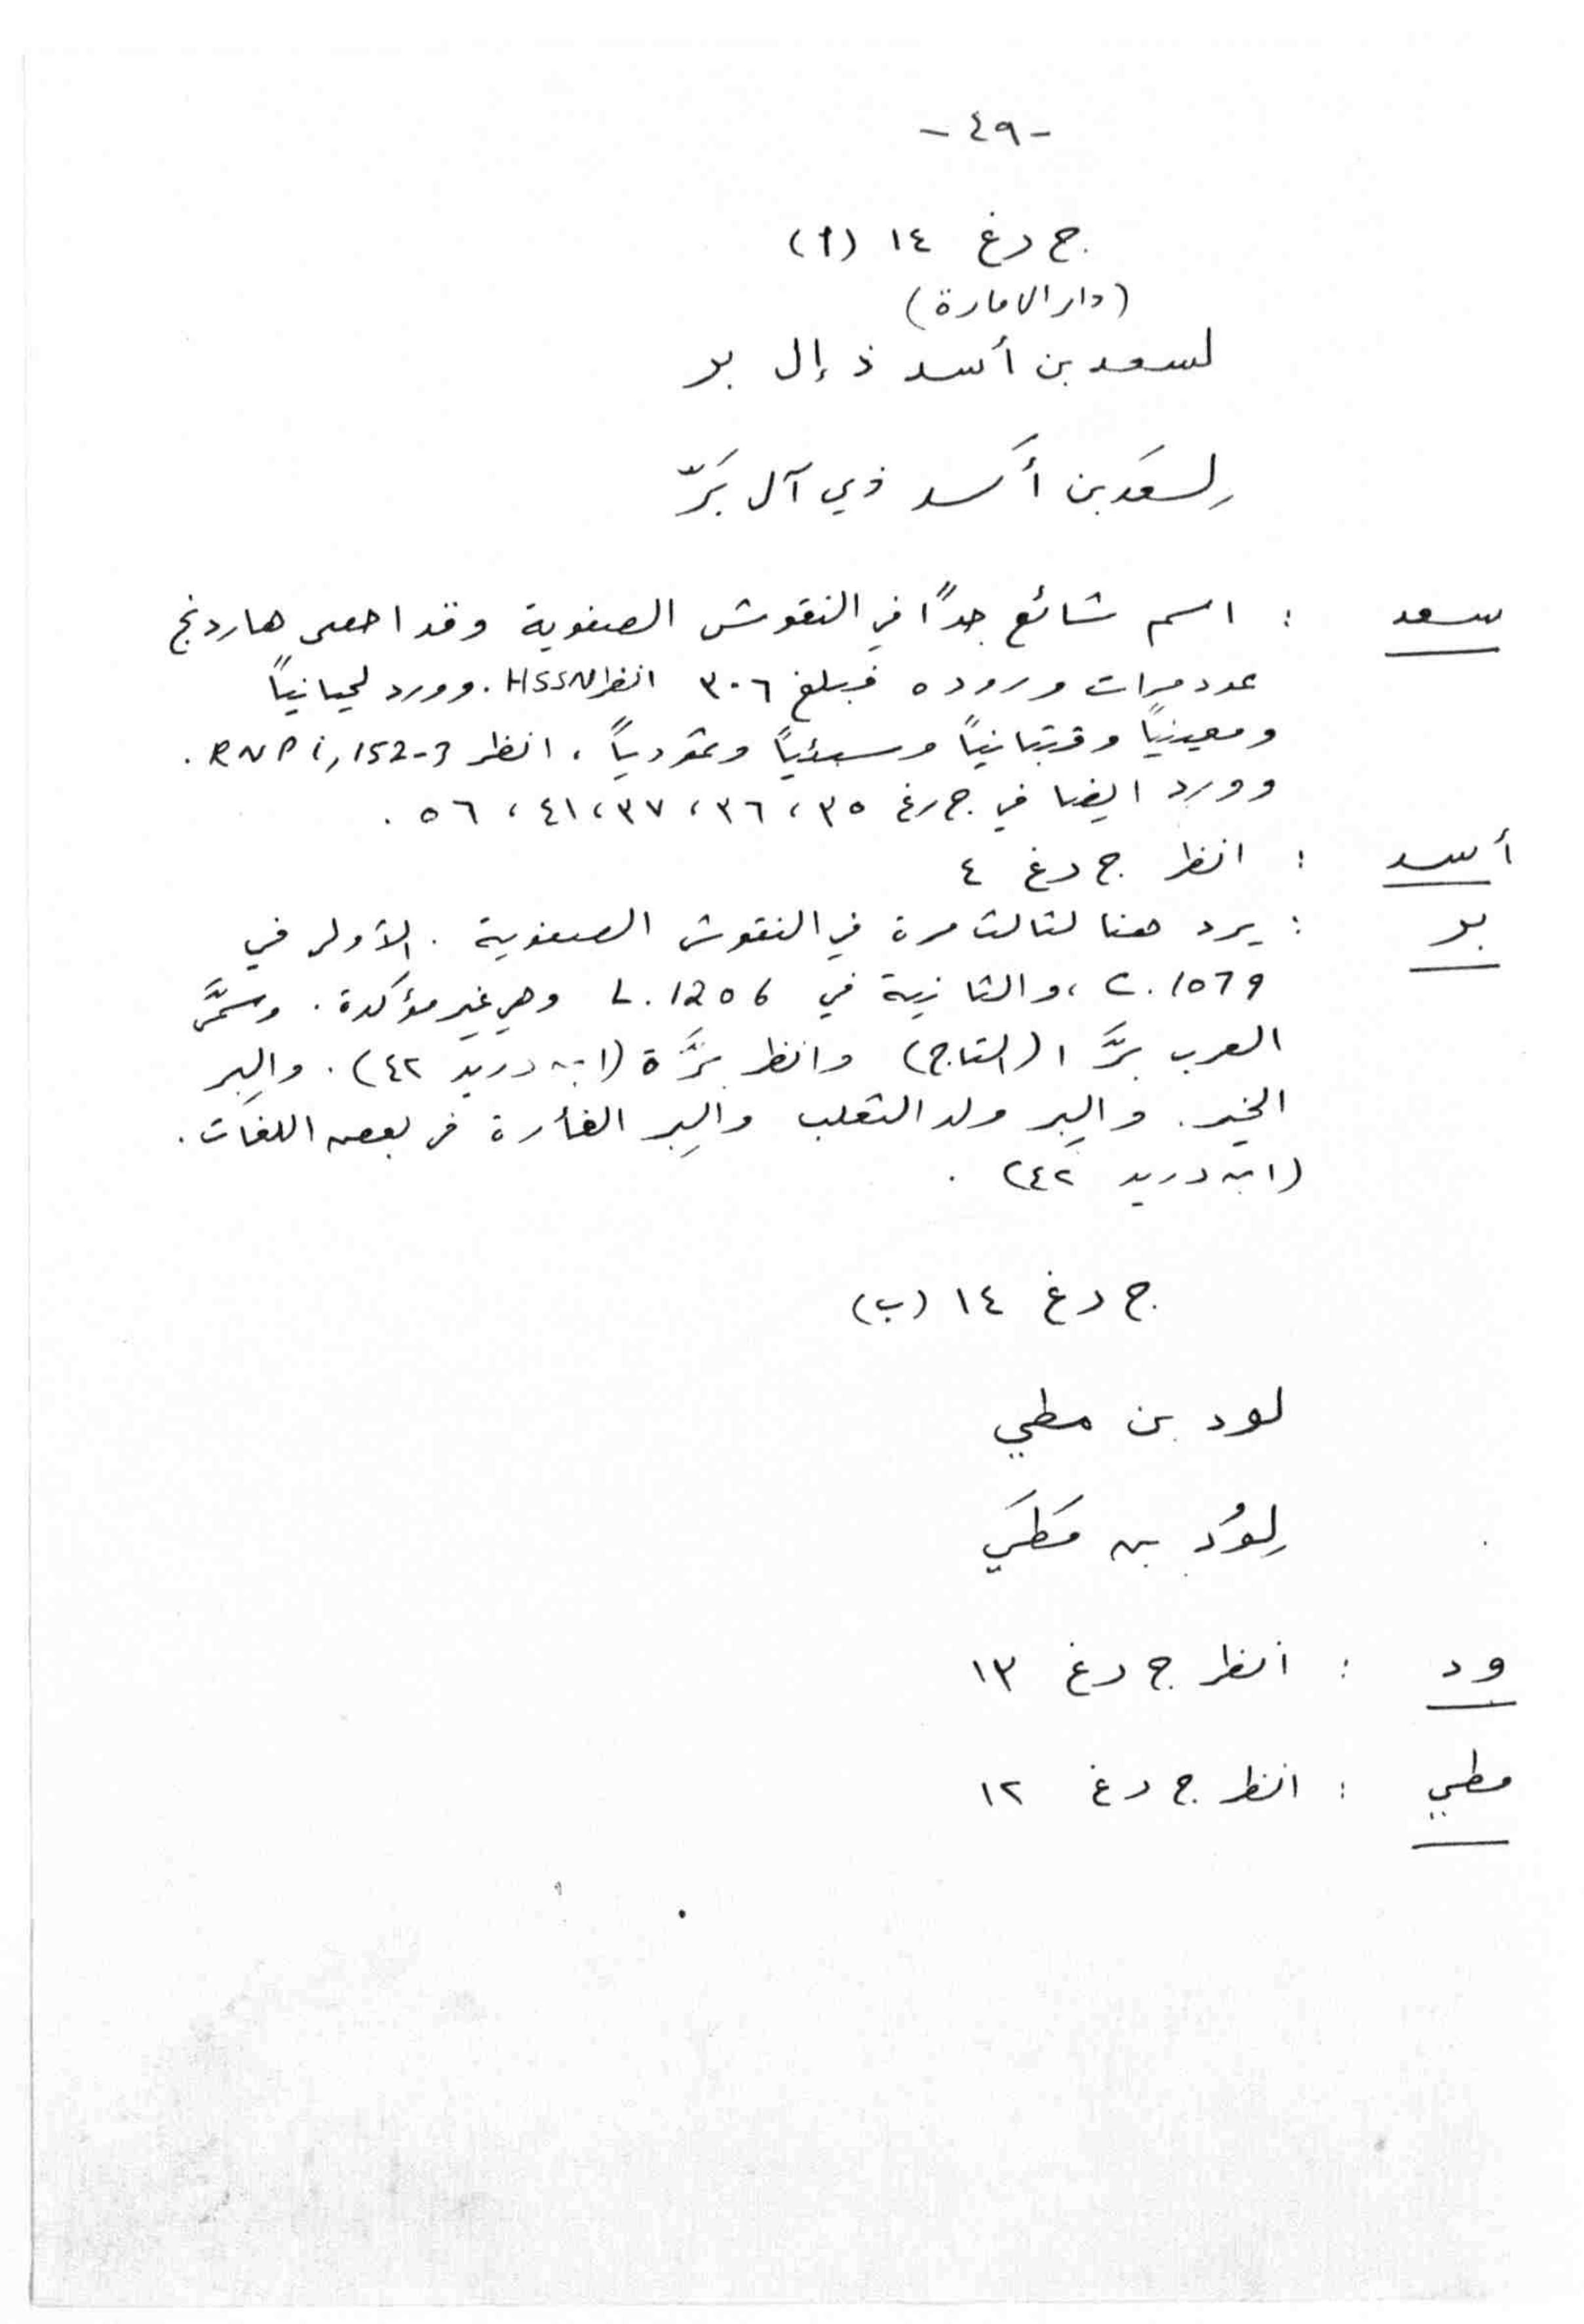 - ٤٩ -
ج د غ ١٤ (أ)
(دار الامارة)
لسعد بن أسد ذ إل بر
لِسَعَد بن أَسد ذي آل بَرّ
سعد : اسم شائع جداً في النقوش الصفوية وقد احصى هاردنج
عدد مرات وروده فبلغ ٣٠٦ انظر HSSN. وورد لحيانياً
ومعينياً وقتبانياً وسبئياً وثمودياً ، انظر RNP i, 152-3 .
وورد ايضا في ج رغ ٣٥ ، ٣٦ ، ٣٧ ، ٤١ ، ٥٦ .
أسد : انظر ج د غ ٤
بر : يرد هنا لثالث مرة في النقوش الصفوية . الأولى في
C. 1579 ، والثانية في L. 1256 وهي غير مؤكدة . وسمَّى
العرب بَرَّا (التاج) وانظر بَرَّة (ابن دريد ٤٢) . والبِر
الخير . والبِر ولد الثعلب والبِر الفأرة في بعض اللغات .
(ابن دريد ٤٢) .
ج د غ ١٤ (ب)
لود بن مطي
لِوُد بن مَطَي
ود : انظر ج د غ ١٣
مطي : انظر ج د غ ١٢